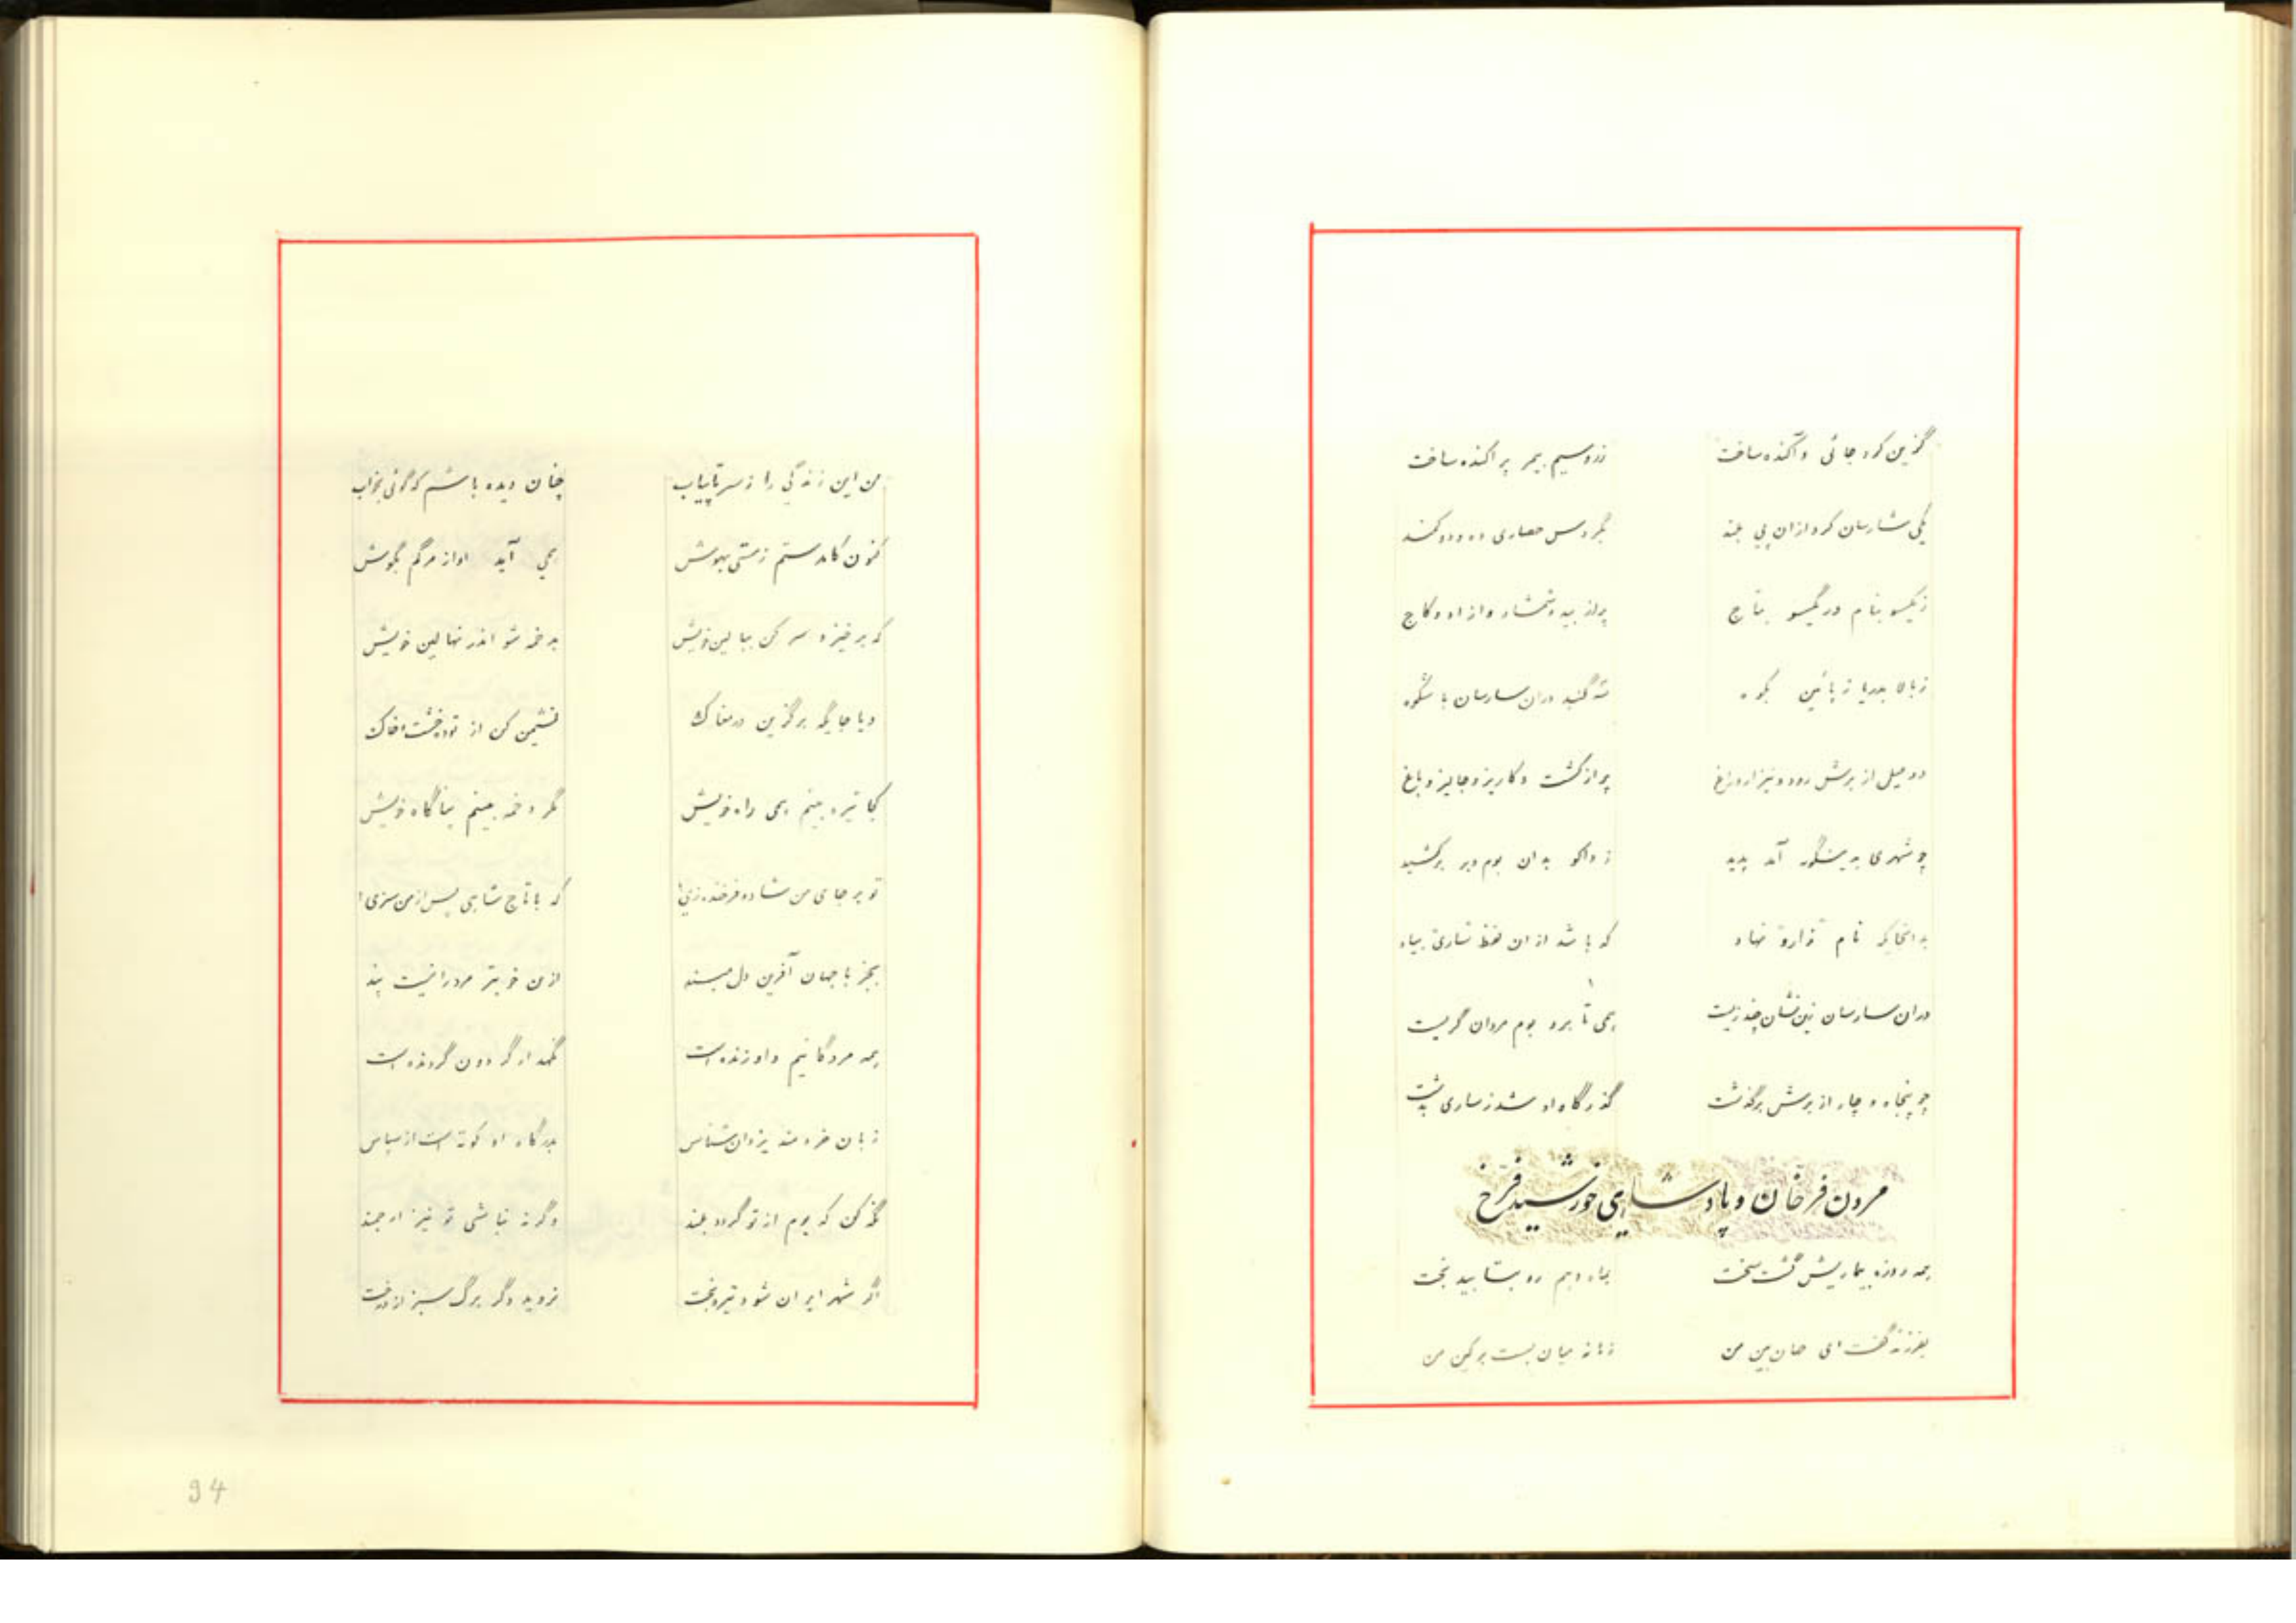 گزین کرد جائی و آکنده ساخت
زر و سیم بیمر پراکنده ساخت
یکی شارسان کرد ازان پی بلند
بگردش حصاری ده و دو کمند
زیکسو بنام دریکسو بتاج
پراز بید و شمشاد و ازاد و کاج
زبالا بدریا زپائین بکوه
شه گنبد دران سارسان با شکوه
دو میل از برش رود و نیزار و راغ
پراز کشت و کاریز و جالیز و باغ
چو شهری بدینسگونه آمد پدید
ز واکو بدان بوم وبر برکشید
بدانجایکه نام نهاد
که باشد ازان لفظ ساری بیاد
دران سارسان زین نشان چند زیست
همی تا برو بوم مردان گریست
چو پنجاه و چار از برش برگذشت
گذرگاه او شد زساری بدشت
مردن فرخان و پادشاهی خورشید فرخ
همه روزه بیماریش گشت سخت
بماه دهم رو بتابید بخت
بفرزند گفت ای جهان بین من
زمانه میان بست بر کین من
من این زندگی را زسر تا بپایاب
چنان دیده باشم که گوئی بخواب
کنون کامدستم زمستی بهوش
همی آید اواز مرگم بگوش
که برخیز و سر کن ببالین خویش
بدخمه شو اندر نهالین خویش
ویا جایگه برگزین درمغاک
نشیمن کن از توده خشت و خاک
کجا تیره بینم همی راه خویش
مگر دخمه بینم پناگاه خویش
تو بر جای من شاد و فرخنده زی!
که با تاج شاهی پس از من سزی!
بجز با جهان آفرین دل مبند
ازین خوبتر مرد را نیست پند
همه مردگانیم و او زنده است
نگهدار گردون گردنده است
زبان خردمند یزدان شناس
بدرگاه او کوته است از سپاس
نگه کن که بوم از تو گردد بلند
وگرنه نباشی تو نیز ارجمند
اگر شهر ایران شود تیره بخت
نروید دگر برگ سبز از درخت
94